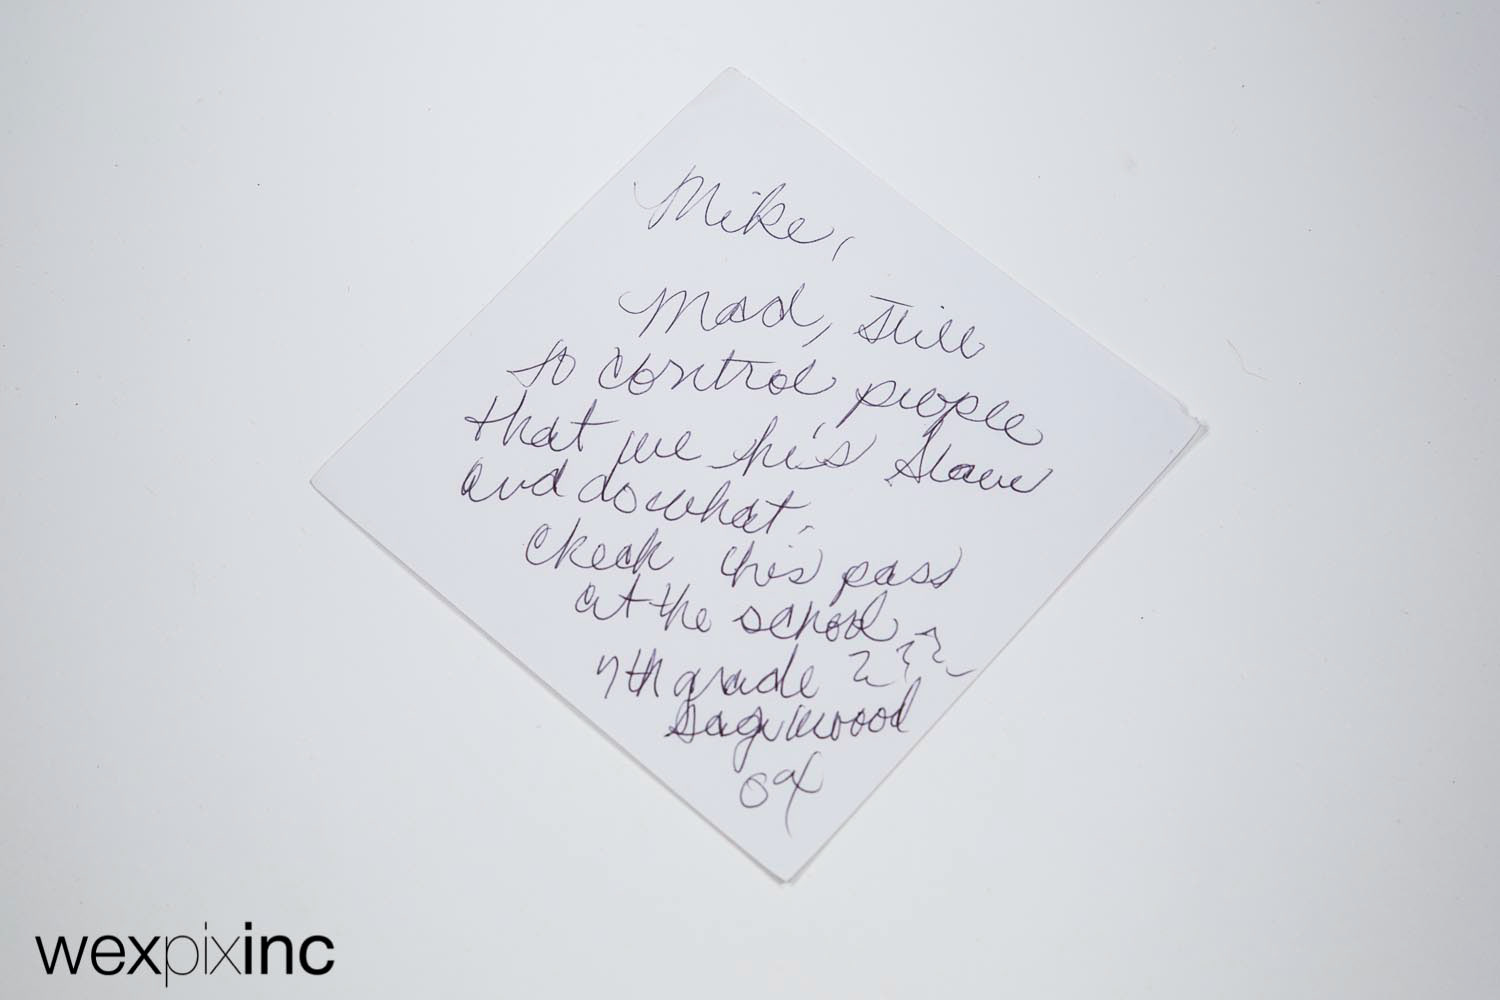 Mike,
Mad, still
to control people
that we he's slave
and do what.
Check his pass
at the school,
7th grade ???
Sagewood
wexpixinc